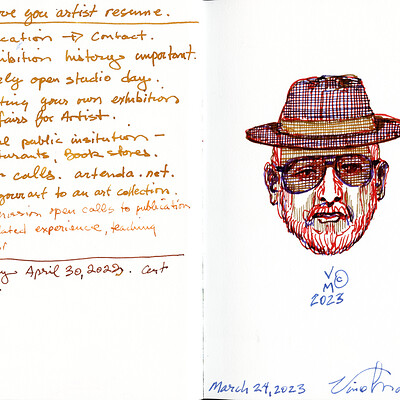 ve you artist resume.
cation → Contact.
ibition history important.
ly open studio day.
ting your own exhibition
fairs for Artist.
l public insitution —
urants, book stores.
calls. artenda.net.
your art to an art collection.
mission open calls to publication
lated experience, teaching
April 30, 2023. Cert
V
M ©
2023
March 24, 2023